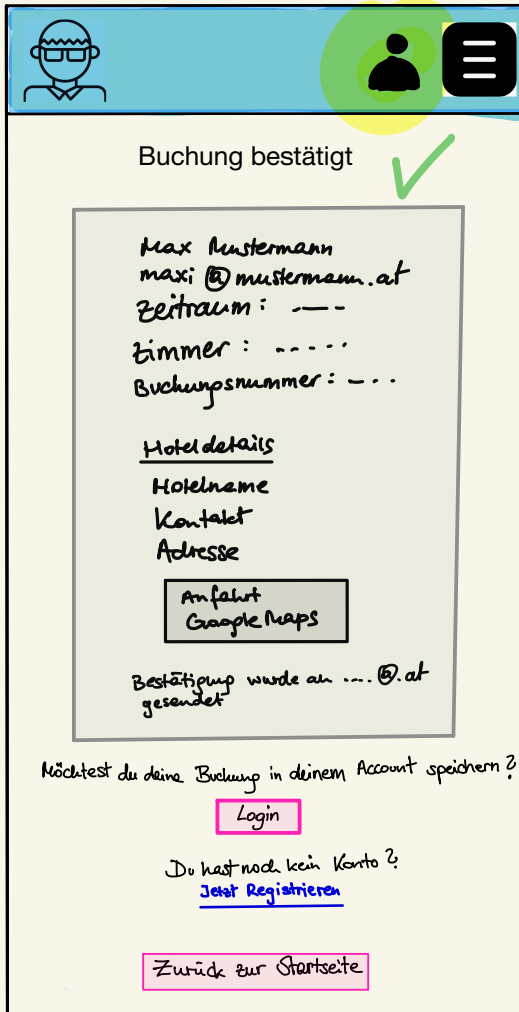 Buchung bestätigt
Max Mustermann
maxi @ mustermann.at
Zeitraum: ----
Zimmer: -----
Buchungsnummer: ---
Hoteldetails
Hotelname
Kontakt
Adresse
Anfahrt
Google Maps
Bestätigung wurde an ....@.at
gesendet
Möchtest du deine Buchung in deinem Account speichern?
Login
Du hast noch kein Konto?
Jetzt Registrieren
Zurück zur Startseite